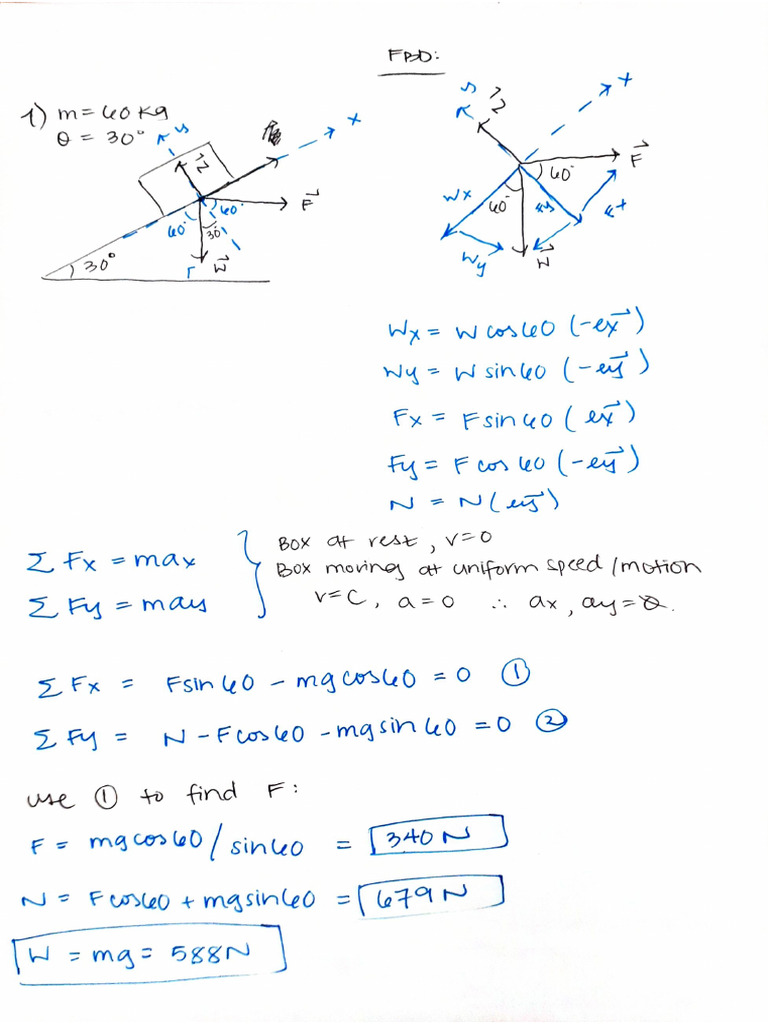 FBD:
1) m = 60 kg
θ = 30°
x
y
N
F
60°
60°
30°
W
30°
x
y
N
F
60°
Wx
60°
Fy
Fx
Wy
W
Wx = W cos 60 (-ex)
Wy = W sin 60 (-ey)
Fx = F sin 60 (ex)
Fy = F cos 60 (-ey)
N = N (ey)
Σ Fx = max
Σ Fy = may
Box at rest, v=0
Box moving at uniform speed/motion
v=c, a=0 ∴ ax, ay=0.
Σ Fx = F sin 60 - mg cos 60 = 0 ①
Σ Fy = N - F cos 60 - mg sin 60 = 0 ②
use ① to find F:
F = mg cos 60 / sin 60 = 340 N
N = F cos 60 + mg sin 60 = 679 N
W = mg = 588 N